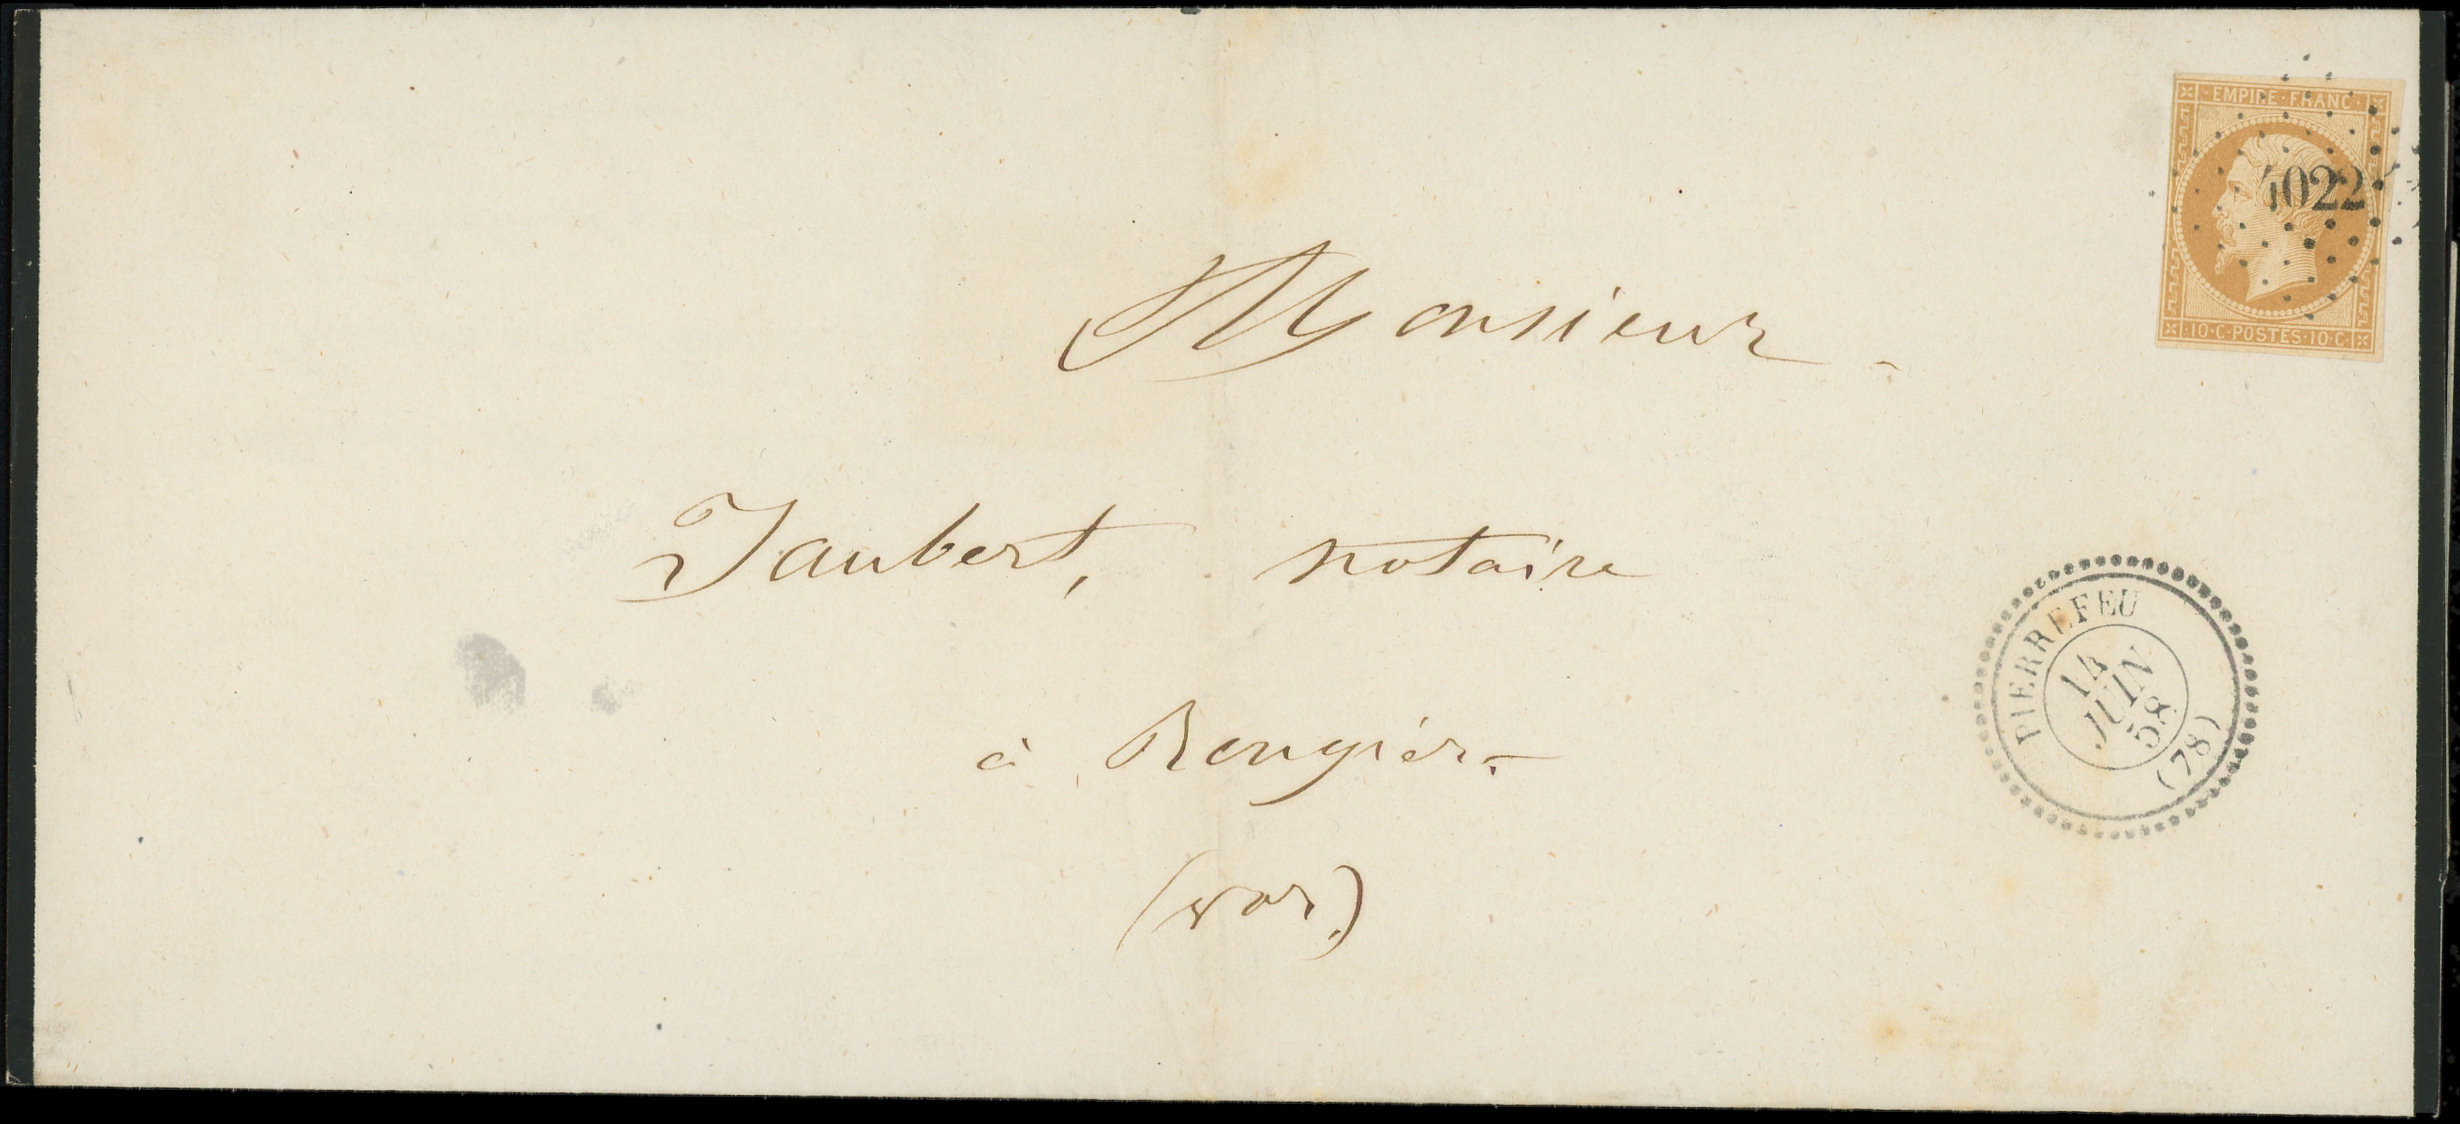 EMPIRE · FRANC ·
4022
· 10 · C · POSTES · 10 · C ·
Monsieur
Jaubert, notaire
à Rougiers
(var.)
PIERREFEU
14
JUIN
58
(78)